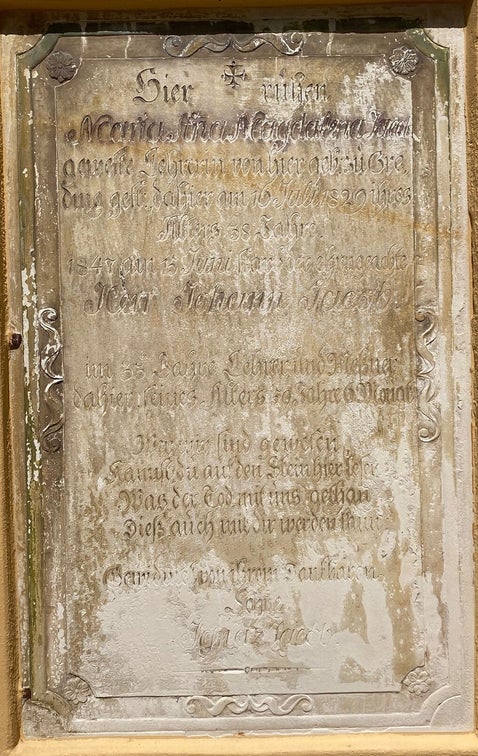 Hier ruhen
Maria Anna Magdalena
geweste Lehrerin von hier geb. zu Gre
ding gest. dahier am 16 Juli 1829 ihres
Alters 38 Jahre.
1847 am 13 Juni starb der ehrngeachtete
Herr Johann
im 35 Jahre Lehrer und Meßner
dahier, seines Alters 59 Jahre 6 Monat
Wer wir sind gewesen
Kannst du auf den Stein hier lesen
Was der Tod mit uns gethan
Dieß auch mit dir werden kann
Gewidmet von ihrem Dankbaren
Sohne
Ignatz